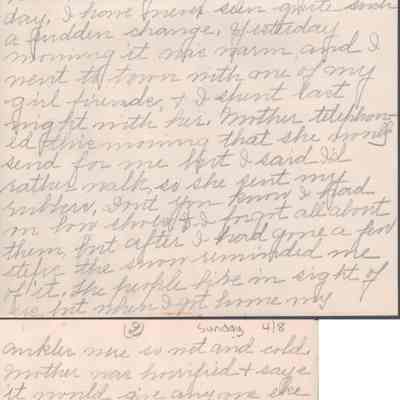 day, I have never seen quite such
a sudden change. Yesterday
morning it was warm, and I
went to town with one of my
girl friends, & I spent last
night with her. Mother telephon-
ed this morning that she would
send for me but I said I'd
rather walk, so she sent my
rubbers. Don't you know I had
on low shoes & I forgot all about
them, but after I had gone a few
steps the snow reminded me
of it. The people live in sight of
us, but when I got home my
(2) Sunday 4/8
ankles were so wet and cold.
Mother was horrified & says
it would give anyone else